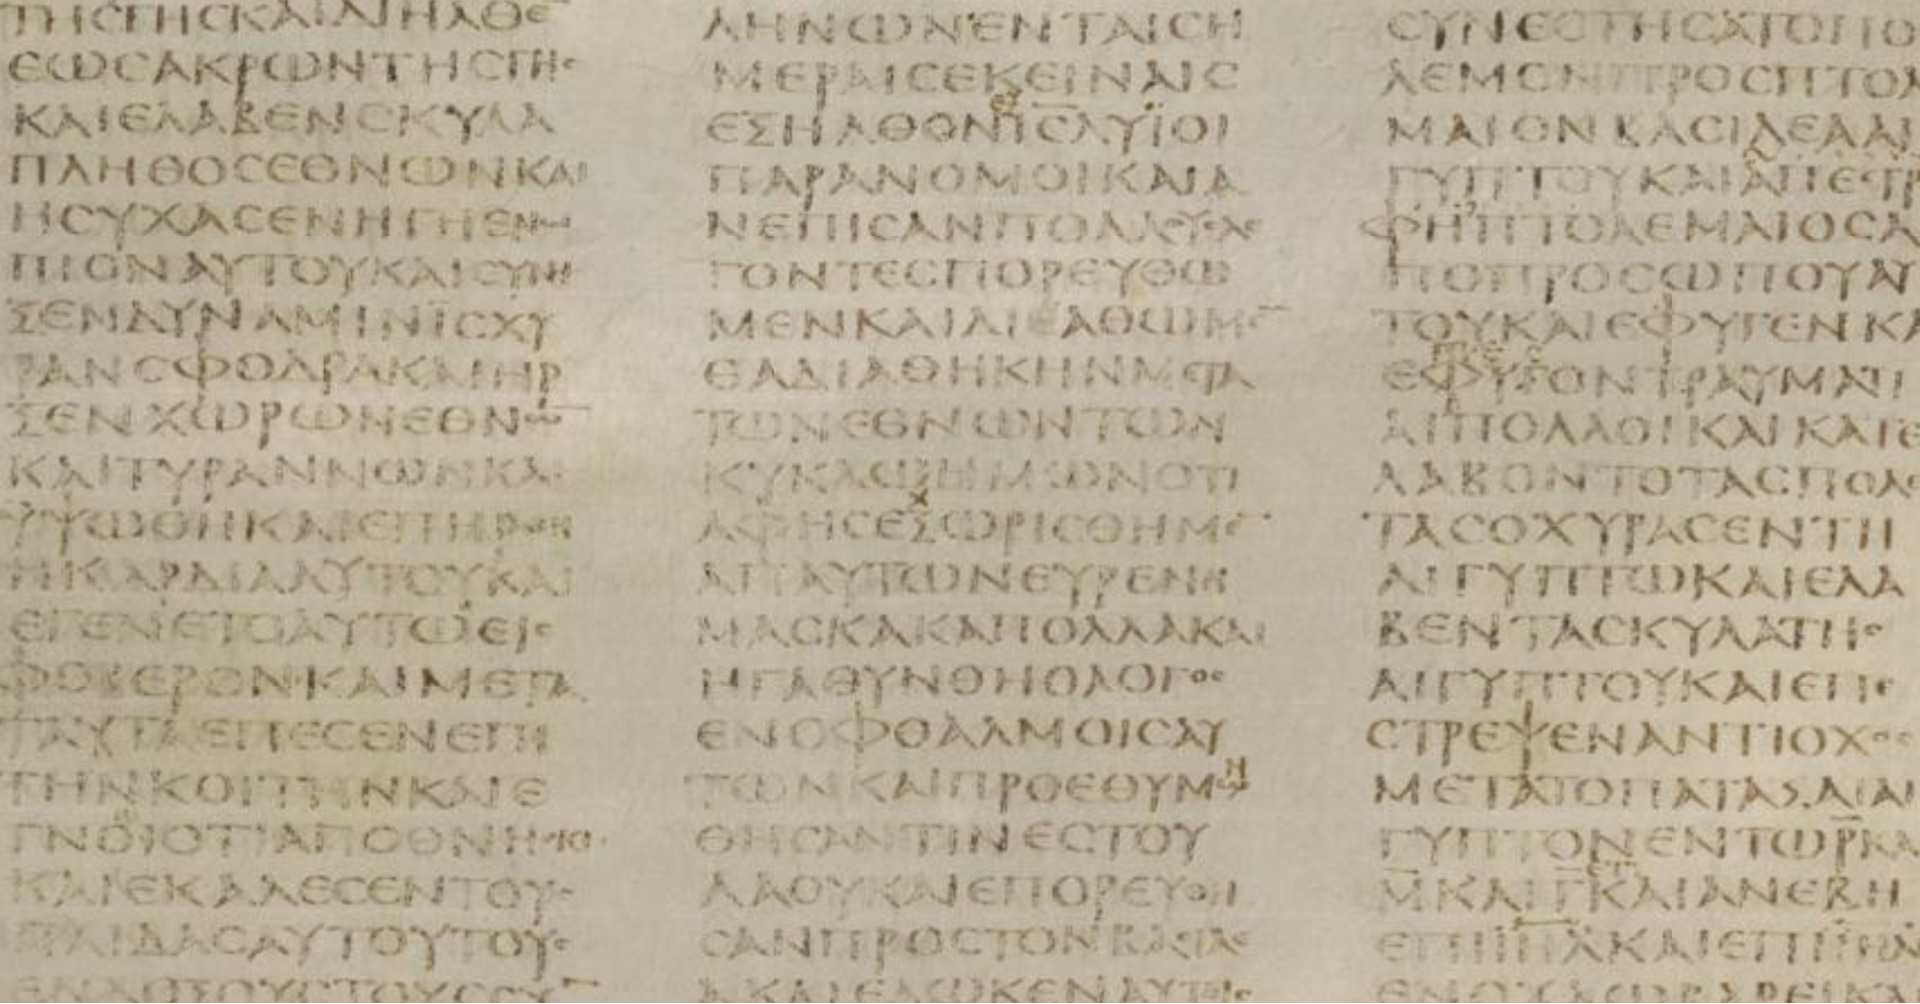 ΤΗϹΓΗϹΚΑΙΔΙΗΛΘΕ
ΕΩϹΑΚΡΩΝΤΗϹΓΗϹ
ΚΑΙΕΛΑΒΕΝϹΚΥΛΑ
ΠΛΗΘΟϹΕΘΝΩΝΚΑΙ
ΗϹΥΧΑϹΕΝΗΓΗΕΝΩ
ΠΙΟΝΑΥΤΟΥΚΑΙϹΥΝΗ
ΞΕΝΔΥΝΑΜΙΝΙϹΧΥ
ΡΑΝϹΦΟΔΡΑΚΑΙΗΡ
ΞΕΝΧΩΡΩΝΕΘΝΩ
ΚΑΙΤΥΡΑΝΝΩΝΚΑΙ
ΥΨΩΘΗΚΑΙΕΠΗΡΘΗ
ΗΚΑΡΔΙΑΑΥΤΟΥΚΑΙ
ΕΓΕΝΕΤΟΑΥΤΩΕΙϹ
ΦΟΒΕΡΟΝΚΑΙΜΕΤΑ
ΤΑΥΤΑΕΠΕϹΕΝΕΠΙ
ΤΗΝΚΟΙΤΗΝΚΑΙΕ
ΓΝΟΙΟΤΙΑΠΟΘΝΗϹΚΙ
ΚΑΙΕΚΑΛΕϹΕΝΤΟΥϹ
ΠΑΙΔΑϹΑΥΤΟΥΤΟΥϹ
ΕΝΔΟΞΟΥϹΤΟΥϹϹΥ
ΛΗΝΩΝΕΝΤΑΙϹΗ
ΜΕΡΑΙϹΕΚΕΙΝΑΙϹ
ΕΞΗΛΘΟΝΙϹΛΥΪΟΙ
ΠΑΡΑΝΟΜΟΙΚΑΙΑ
ΝΕΠΙϹΑΝΠΟΛΛΟΥϹΛΕ
ΓΟΝΤΕϹΠΟΡΕΥΘΩ
ΜΕΝΚΑΙΔΙΕΛΘΩΜΕ
ΕΑΔΙΑΘΗΚΗΝΜΕΤΑ
ΤΩΝΕΘΝΩΝΤΩΝ
ΚΥΚΛΩΗΜΩΝΟΤΙ
ΑΦΗϹΕΞΩΡΙϹΘΗΜΕ
ΑΠΑΥΤΩΝΕΥΡΕΝΗ
ΜΑϹΚΑΚΑΠΟΛΛΑΚΑΙ
ΗΓΑΘΥΝΘΗΟΛΟΓΟϹ
ΕΝΟΦΘΑΛΜΟΙϹΑΥ
ΤΩΝΚΑΙΠΡΟΕΘΥΜΩ
ΘΗϹΑΝΤΙΝΕϹΤΟΥ
ΛΑΟΥΚΑΙΕΠΟΡΕΥΘΗ
ϹΑΝΠΡΟϹΤΟΝΒΑϹΙΛΕ
ΑΚΑΙΕΔΩΚΕΝΑΥΤΟΙϹ
ϹΥΝΕϹΤΗϹΑΤΟΠΟ
ΛΕΜΟΝΠΡΟϹΠΤΟΛ
ΜΑΙΟΝΒΑϹΙΛΕΑΑΙ
ΓΥΠΤΟΥΚΑΙΑΠΕϹΤΡ
ΦΗΠΤΟΛΕΜΑΙΟϹΑ
ΠΟΠΡΟϹΩΠΟΥΑΥ
ΤΟΥΚΑΙΕΦΥΓΕΝΚΑ
ΕΦΥΓΟΝΤΡΑΥΜΑΤΙ
ΑΙΠΟΛΛΟΙΚΑΙΚΑΤΕ
ΛΑΒΟΝΤΟΤΑϹΠΟΛΙ
ΤΑϹΟΧΥΡΑϹΕΝΤΗ
ΑΙΓΥΠΤΩΚΑΙΕΛΑ
ΒΕΝΤΑϹΚΥΛΑΤΗϹ
ΑΙΓΥΠΤΟΥΚΑΙΕΠΕ
ϹΤΡΕΨΕΝΑΝΤΙΟΧΟϹ
ΜΕΤΑΤΟΠΑΤΑΞΑΙΑΙ
ΓΥΠΤΟΝΕΝΤΩΡΚΑ
ΜΚΑΙΓΚΑΙΑΝΕΒΗ
ΕΠΙΙΗΛΚΑΙΕΠΙΙΗΛ
ΕΝΟΧΛΩΒΑΡΕΙΚΑ